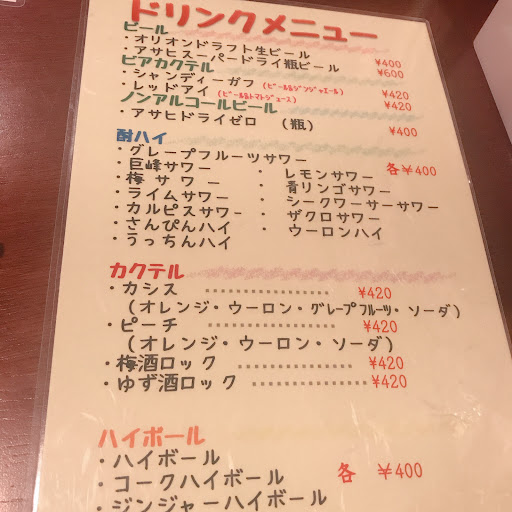 ドリンクメニュー
ビール
・オリオンドラフト生ビール ¥400
・アサヒスーパードライ瓶ビール ¥600
ビアカクテル
・シャンディーガフ (ビール&ジンジャエール) ¥420
・レッドアイ (ビール&トマトジュース) ¥420
ノンアルコールビール
・アサヒドライゼロ (瓶) ¥400
酎ハイ
・グレープフルーツサワー 各¥400
・巨峰サワー ・レモンサワー
・梅サワー ・青リンゴサワー
・ライムサワー ・シークワーサーサワー
・カルピスサワー ・ザクロサワー
・さんぴんハイ ・ウーロンハイ
・うっちんハイ
カクテル
・カシス ················· ¥420
(オレンジ・ウーロン・グレープフルーツ・ソーダ)
・ピーチ ················· ¥420
(オレンジ・ウーロン・ソーダ)
・梅酒ロック ··············· ¥420
・ゆず酒ロック ··············· ¥420
ハイボール
・ハイボール
・コークハイボール 各 ¥400
・ジンジャーハイボール